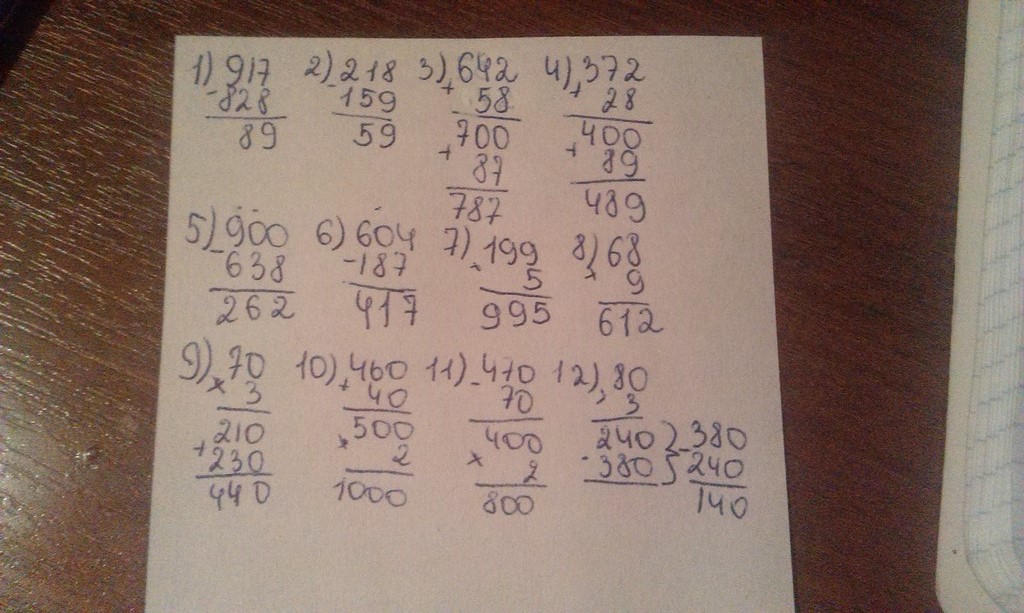 1) 917 2) 218 3) 642 4) 372
- 828 - 159 + 58 + 28
89 59 700 400
+ 87 + 89
787 489
5) 900 6) 604 7) 199 8) 68
- 638 - 187 × 5 × 9
262 417 995 612
9) 70 10) 460 11) 470 12) 80
× 3 + 40 - 70 × 3
210 500 400 240 } - 380
+ 230 × 2 × 2 - 380 240
440 1000 800 140